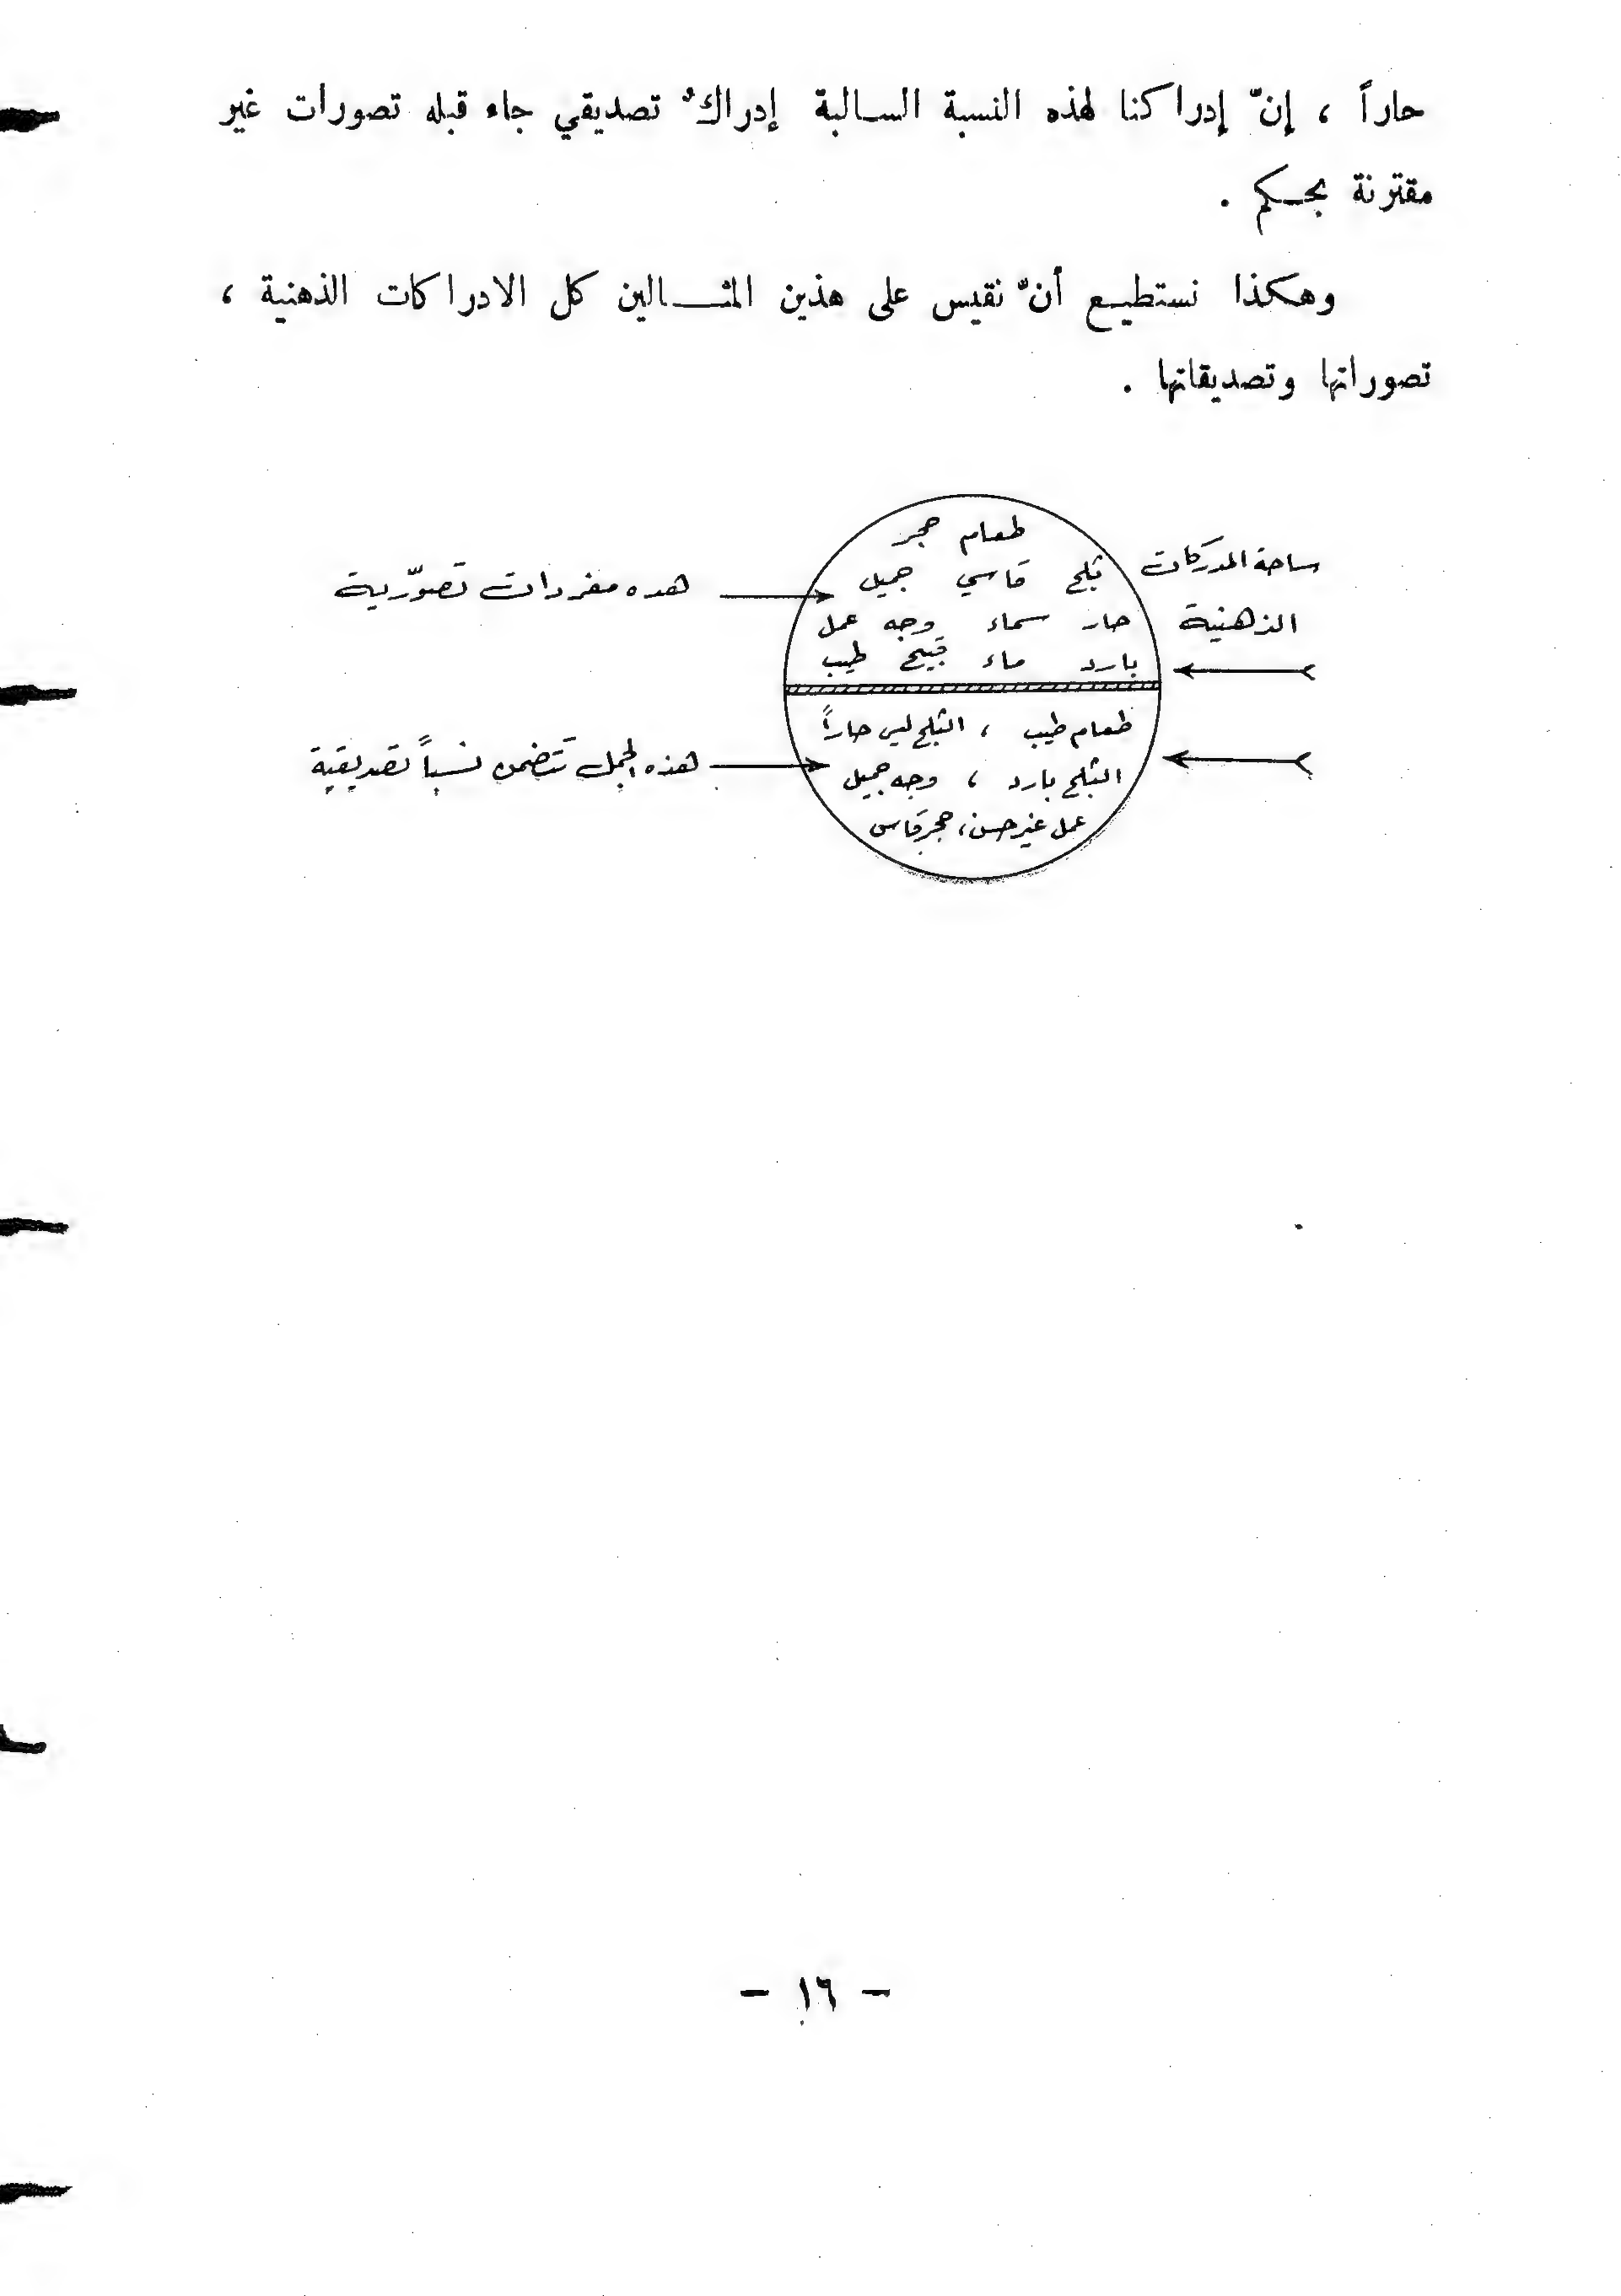 حاراً ، إنّ إدراكنا لهذه النسبة السالبة إدراكٌ تصديقي جاء قبله تصورات غير
مقترنة بحكم .
وهكذا نستطيع أنْ نقيس على هذين المثالين كل الادراكات الذهنية ،
تصوراتها وتصديقاتها .
ساحة المدركات
الذهنية
طعام حجر
ثلج قاسي جميل
حار سماء وجه عمل
بارد ماء قبيح طيب
هذه مفردات تصوّرية
طعام طيب ، الثلج ليس حاراً
الثلج بارد ، وجه جميل
عمل غير حسن ، حجر قاس
هذه الجمل تتضمن نسباً تصديقية
- ١٦ -